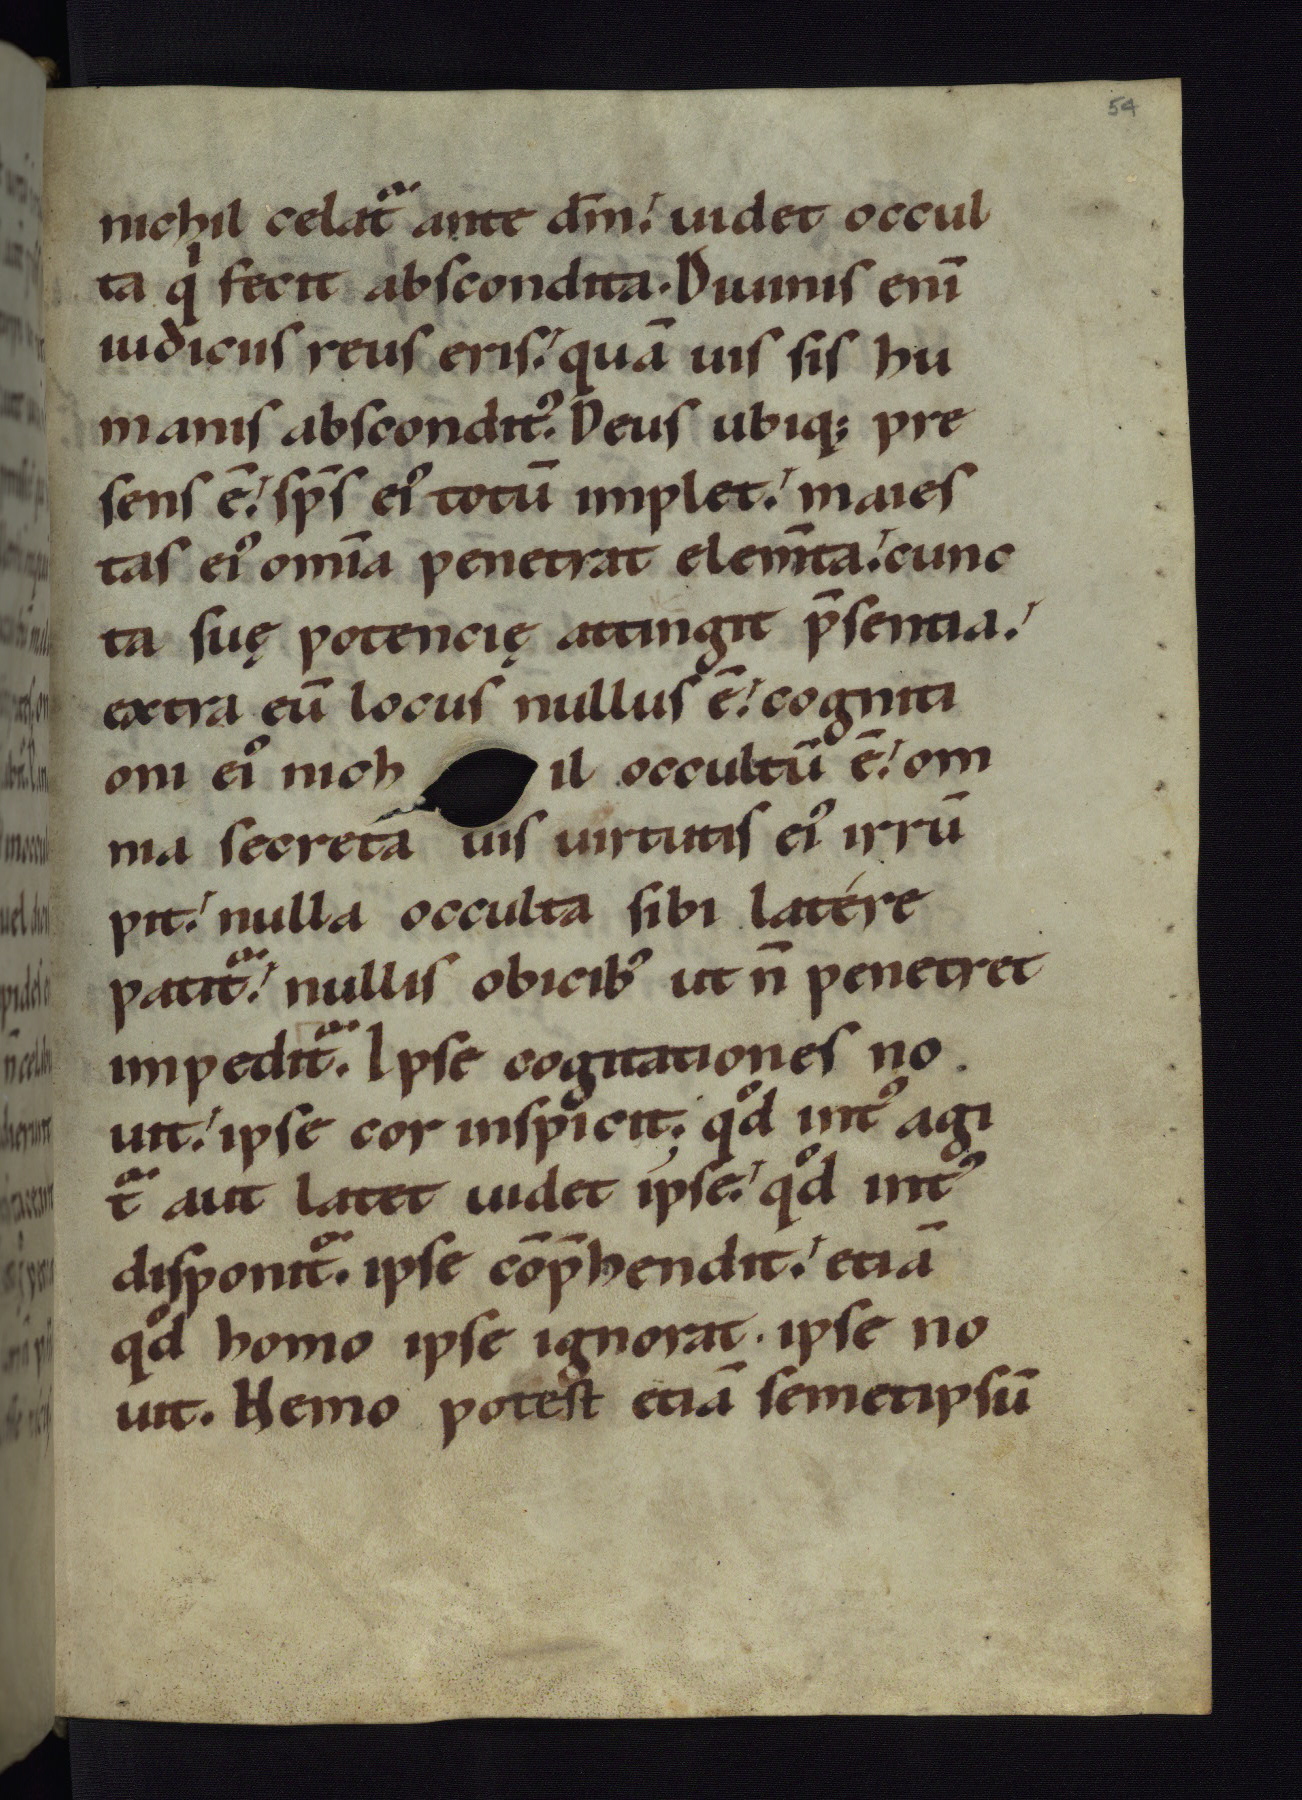 54
nichil celat᷑ ante dm̄. uidet occul
ta qͥ fecit abscondita. Diuinis eni̅
iudiciis reus eris. quā uis sis hu
manis absconditꝰ. Deus ubiq; pre
sens ē. sp̄s eiꝰ totū implet. maies
tas eiꝰ omi̅a penetrat elem̄ta. cunc
ta suę potencię attingit p̄sentia.
extra eū locus nullus ē. cogniti
oni eiꝰ nich il occultū ē. om
nia secreta uis uirtutis eiꝰ irrū
pit. nulla occulta sibi latére
patit᷑. nullis obicibꝰ ut n̄ penetret
impedit᷑. Ipse cogitationes no
uit. ipse cor inspicit. qͦd intꝰ agi
t᷑ aut latet uidet ipse. qͦd intꝰ
disponit᷑. ipse cōp̄hendit. etiā
qͦd homo ipse ignorat. ipse no
uit. Nemo potest etiā semetipsū